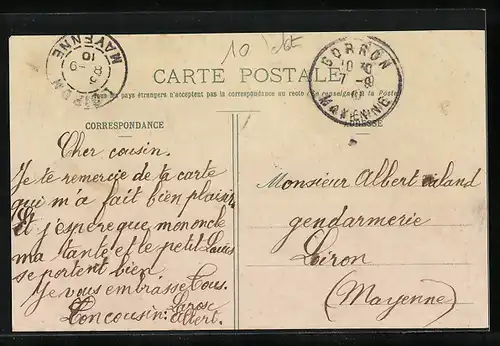 10
CARTE POSTALE
Tous les pays étrangers n'acceptent pas la correspondance au recto (Se renseigner à la Poste)
GORRON
7 -8
10
MAYENNE
LOIRON
8 -9
10
MAYENNE
CORRESPONDANCE
ADRESSE
Cher cousin.
Je te remercie de la carte
qui m'a fait bien plaisir
Et j'espere que mon oncle
ma tante et le petit Louis
se portent bien
Je vous embrasse Tous.
Ton cousin: Albert.
Monsieur Albert
gendarmerie
Loiron
(Mayenne)